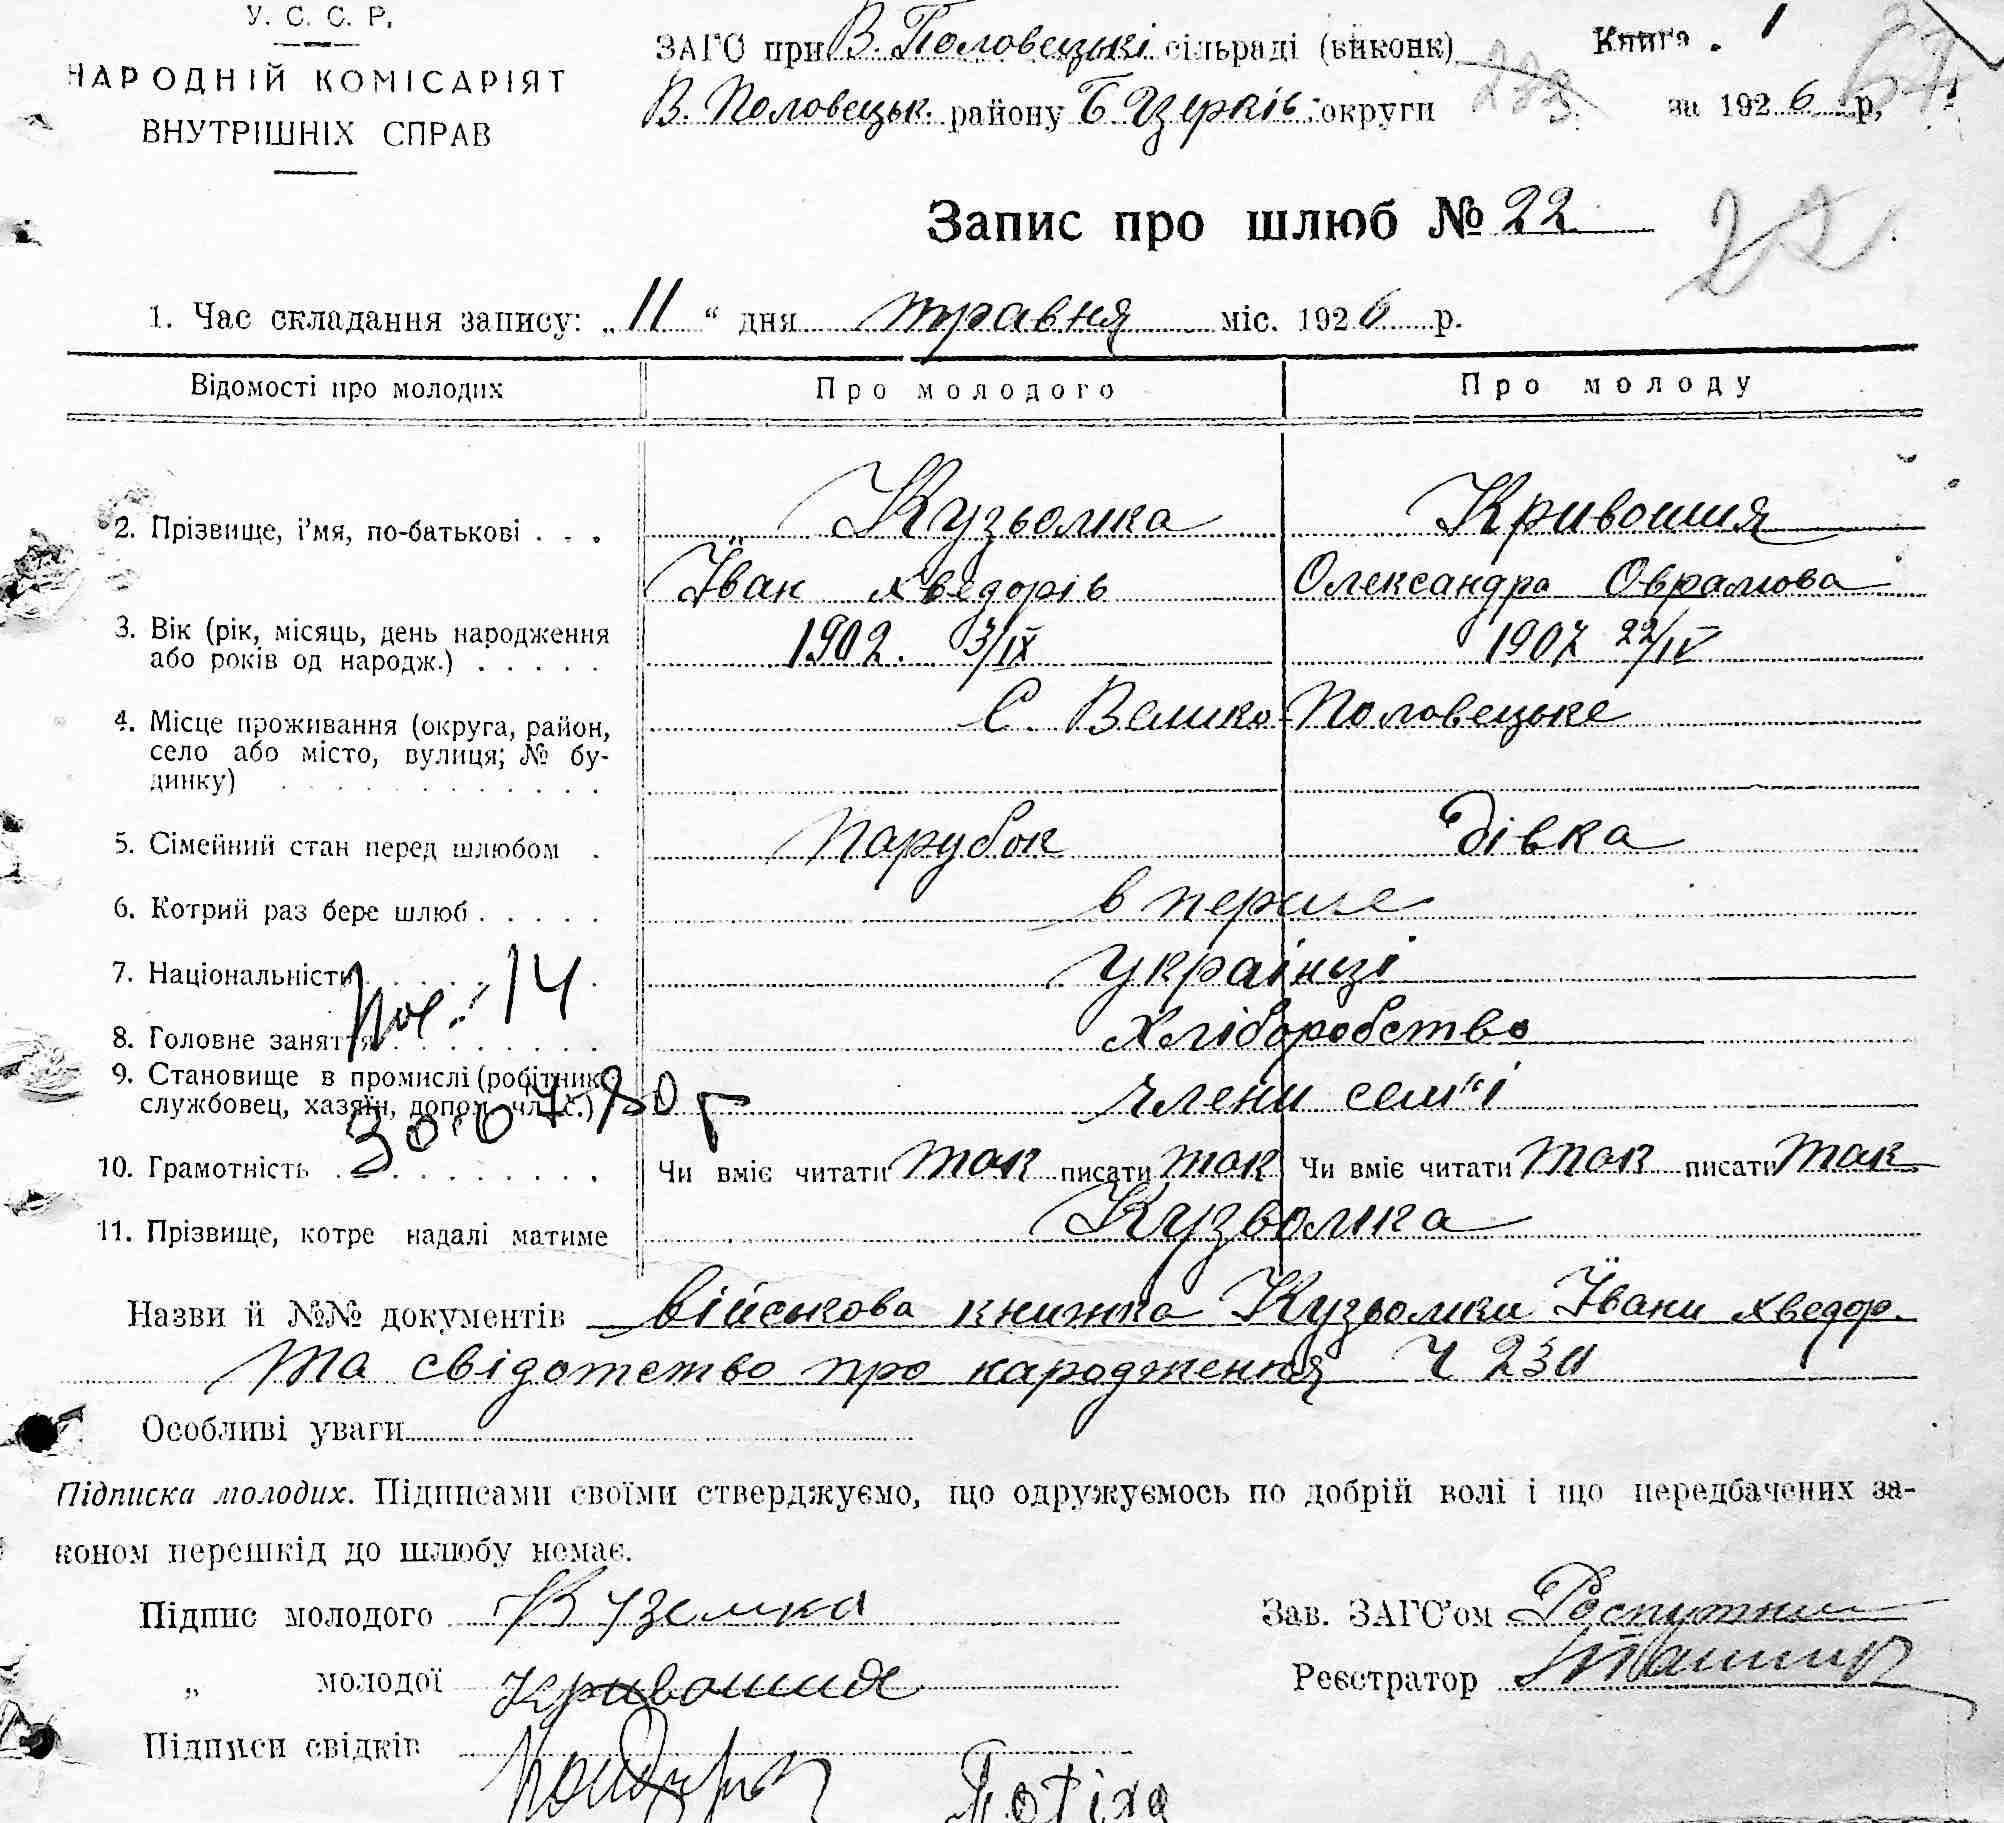 У. С. С. Р.
НАРОДНІЙ КОМІСАРІЯТ
ВНУТРІШНІХ СПРАВ
ЗАГС при В. Половецькі сільраді (виконк)
Книга 1
В. Половецьк. району Б Церків. округи
233
за 1926 р,
67
Запис про шлюб № 22
22
1. Час складання запису: „11“ дня травня міс. 1926 р.
Відомості про молодих
Про молодого
Про молоду
2. Прізвище, і'мя, по-батькові . . .
Кузьомка
Кривошия
Їван Хведорів
Олександра Оврамова
3. Вік (рік, місяць, день народження
або років од народж.) . . . . .
1902. 3/IX
1907 22/IV
4. Місце проживання (округа, район,
село або місто, вулиця; № бу-
динку)
С. Велико-Половецьке
5. Сімейний стан перед шлюбом .
Парубок
дівка
6. Котрий раз бере шлюб . . . . .
в перше
7. Національність
українці
14
8. Головне заняття
хліборобство
9. Становище в промислі (робітник
службовец, хазяїн, допом. чл. с.)
члени сем"ї
30.07.80г
10. Грамотність
Чи вміє читати так писати так
Чи вміє читати так писати так
11. Прізвище, котре надалі матиме
Кузьомка
Назви й №№ документів військова книжка Кузьомки Ївани Хведор.
та свідотство про народження Ч 230
Особливі уваги
Підписка молодих. Підписами своїми стверджуємо, що одружуємось по добрій волі і що передбачених за-
коном перешкід до шлюбу немає.
Підпис молодого Куземка
Зав. ЗАГС'ом
„ молодої Кривошия
Реєстратор
Підписи свідків
Потіха